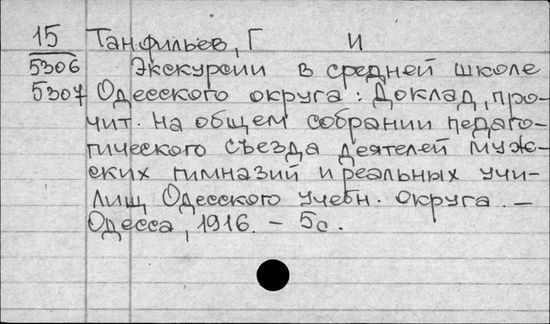 15 Танфильев, Г И
5306 Экскурсии в средней школе
5307 Одесского округа: Доклад, про-
чит. на общем собрании педаго-
гического съезда деятелей муж-
ских гимназий и реальных учи-
лищ Одесского учебн. округа. –
Одесса, 1916. – 5с.